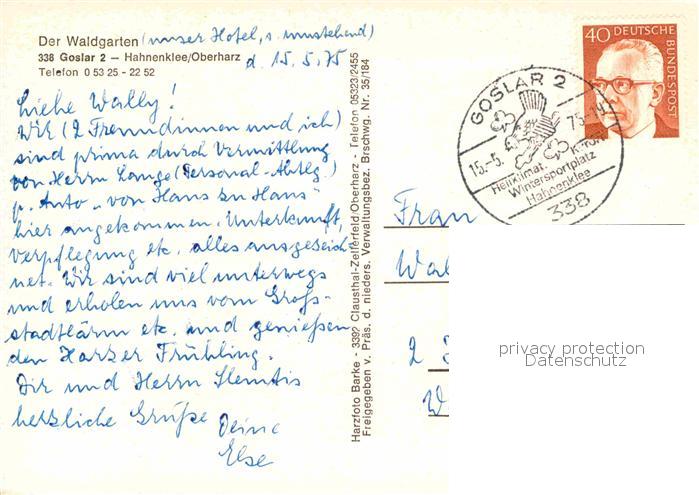 Der Waldgarten (unser Hotel, s. umstehend)
338 Goslar 2 — Hahnenklee/Oberharz
d. 15.5.75
Telefon 0 53 25 - 22 52
Liebe Wally!
Wir (2 Freundinnen und ich)
sind prima durch Vermittlung
von Herrn Lange (Personal-Abtlg.)
p. Auto „von Haus zu Haus“
hier angekommen. Unterkunft,
Verpflegung etc. alles ausgezeich
net. Wir sind viel unterwegs
und erholen uns vom Groß-
stadtlärm etc. und genießen
den Harzer Frühling.
Dir und Herrn
herzliche Grüße Deine
Else
Harzfoto Barke - 3392 Clausthal-Zellerfeld/Oberharz - Telefon 05323/2455
Freigegeben v. Präs. d. nieders. Verwaltungsbez. Brschwg. Nr. 35/184
40 DEUTSCHE
BUNDESPOST
GOSLAR 2
15.-5. 75-
Heilklimat. Kurort
Wintersportplatz
Hahnenklee
338
Frau
Wal
2
W
privacy protection
Datenschutz